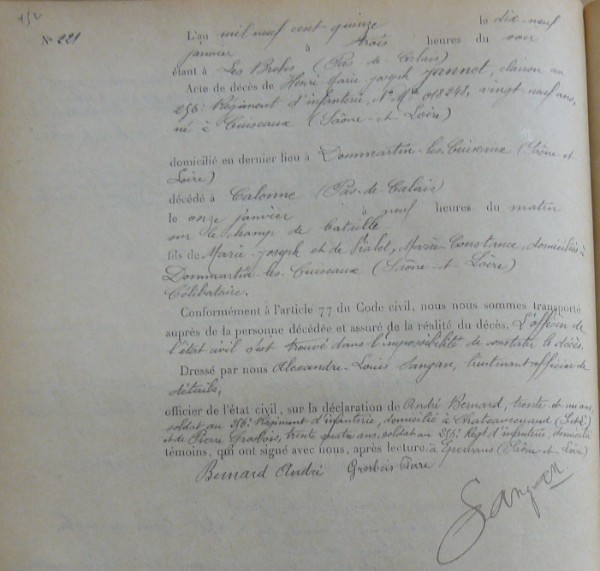 N° 221
L'an mil neuf cent quinze le dix-neuf
janvier à trois heures du soir
étant à Les Brebis (Pas de Calais)
Acte de décès de Henri Marie Joseph Jannet, clairon au
256e Régiment d'infanterie, N° Mle 018248, vingt-neuf ans,
né à Cuiseaux (Saône-et-Loire)
domicilié en dernier lieu à Dommartin-les-Cuiseaux (Saône-et-
Loire)
décédé à Calonne (Pas-de-Calais)
le onze janvier à neuf heures du matin
sur le champ de bataille
fils de Marie-Joseph et de Pialot, Marie-Constance, domiciliés à
Dommartin-les-Cuiseaux (Saône-et-Loire)
Célibataire.
Conformément à l'article 77 du Code civil, nous nous sommes transporté
auprès de la personne décédée et assuré de la réalité du décès. L'officier de
l'état civil s'est trouvé dans l'impossibilité de constater le décès.
Dressé par nous Alexandre-Louis Sangan, lieutenant officier de
détails,
officier de l'état civil, sur la déclaration de André Bernard, trente et un ans,
soldat au 256e Régiment d'infanterie, domicilié à (S.et L.)
et de Pierre Grosbois, trente quatre ans, soldat au 256e Régt d'infanterie, domicilié
témoins, qui ont signé avec nous, après lecture. à (Saône-et-Loire)
Bernard André Grosbois Pierre
Sangan